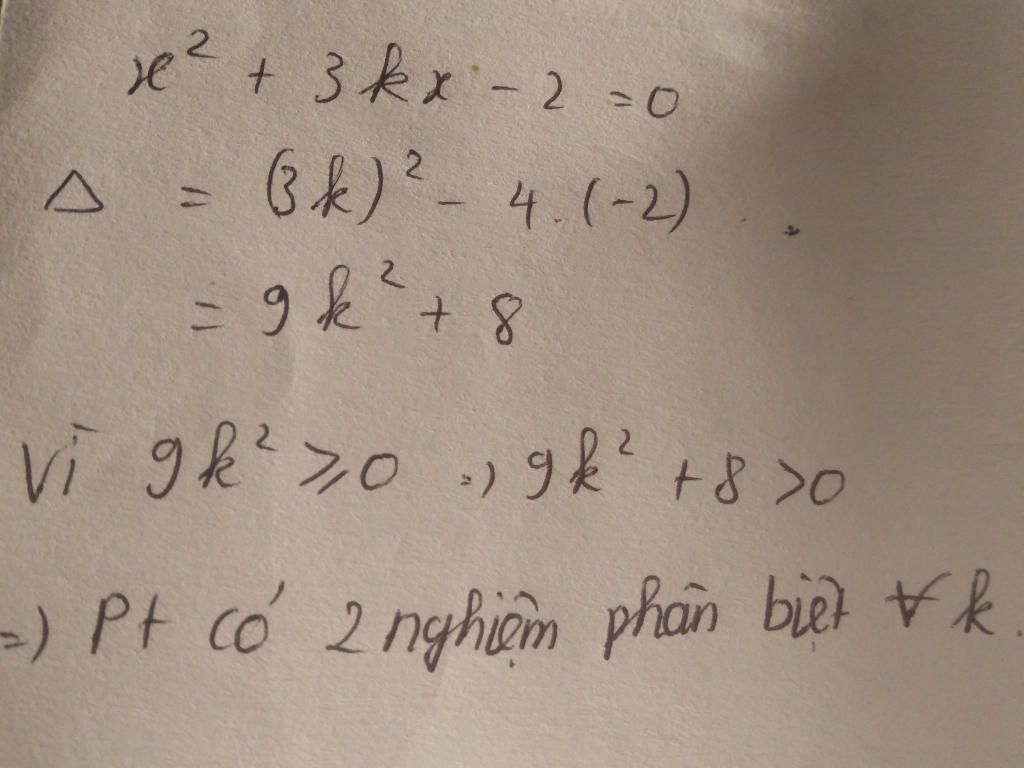 x² + 3kx - 2 = 0
Δ = (3k)² - 4.(-2)
= 9k² + 8
Vì 9k² ⩾ 0 => 9k² + 8 > 0
=) Pt có 2 nghiệm phân biệt ∀ k.